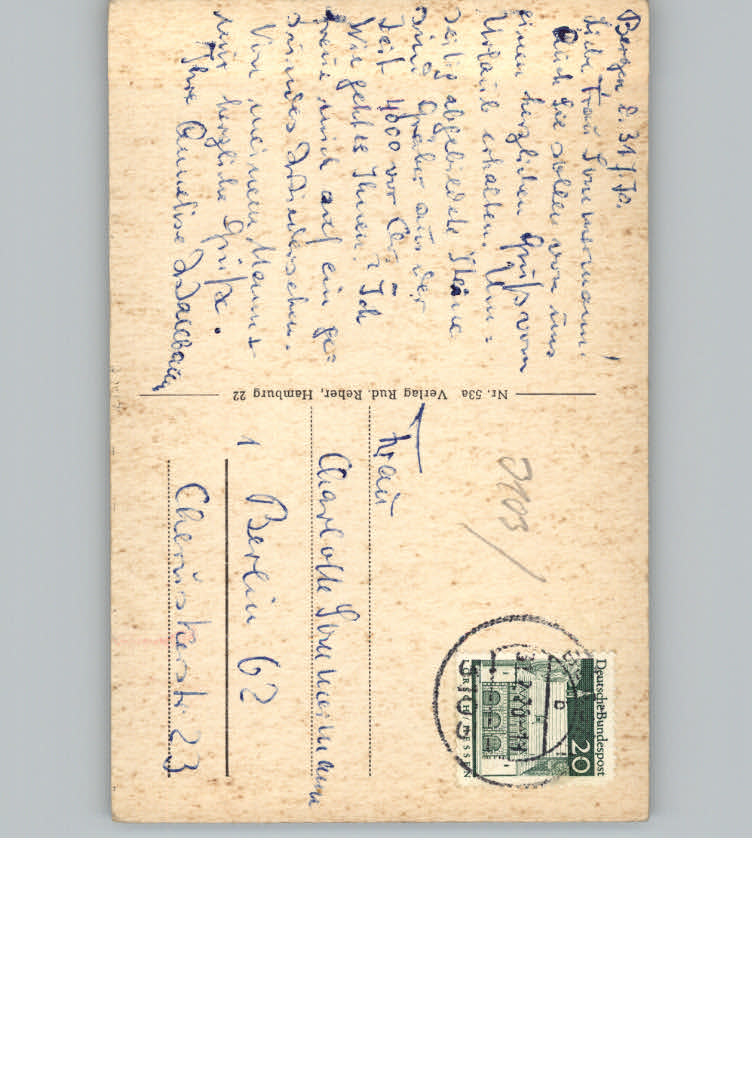 Bergen d. 31.7.70.
Liebe Frau Sommermann!
Auch Sie sollen von uns
einen herzlichen Gruß vom
Urlaub erhalten. Um-
seitig abgebildete Steine
sind Gräber aus der
Zeit 4000 vor Chr.
Wie geht es Ihnen? Ich
freue mich auf ein ge-
sundes Wiedersehen.
Von meinem Mann +
mir herzliche Grüße.
Ihre Annelise
Nr. 53a Verlag Rud. Reher, Hamburg 22
3103
Frau
Charlotte Sommermann
1 Berlin 62
Cheruskerstr. 23
Deutsche Bundespost
20
LORSCH/HESSEN
3103